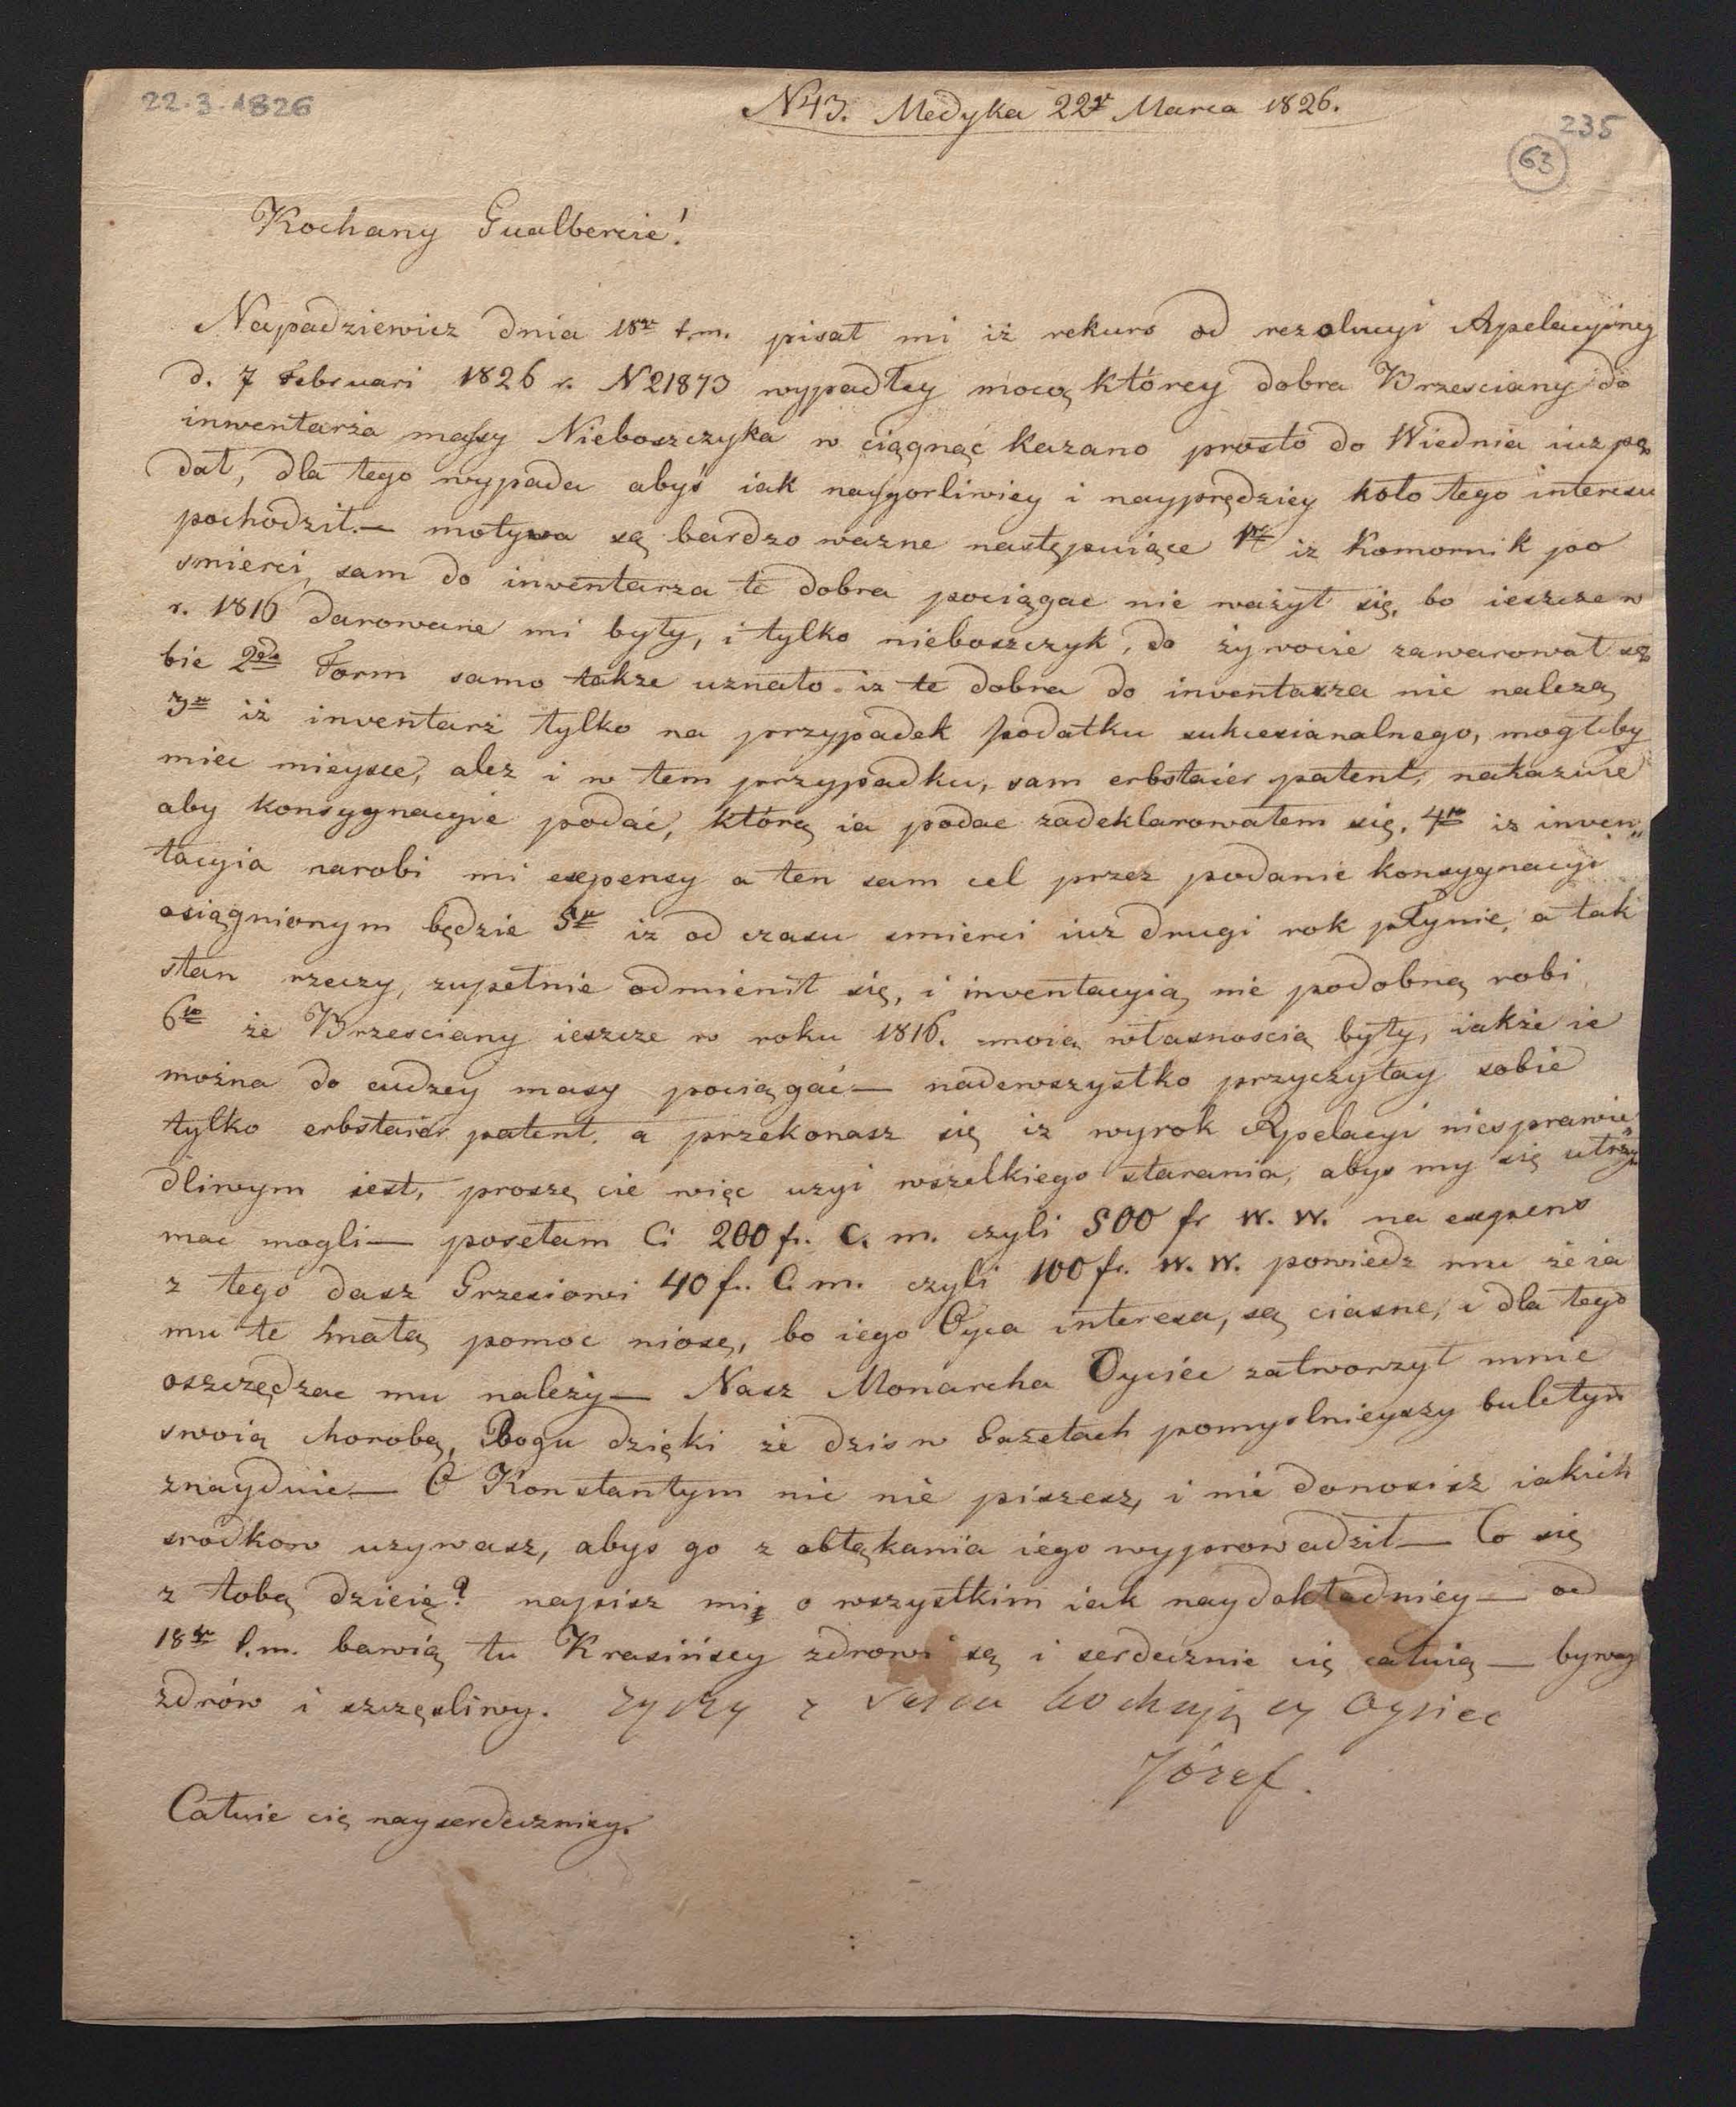 22.3.1826
N43. Medyka 22go Marca 1826.
235
63
Kochany Gualbercie!
Napadziewicz dnia 18go t.m. pisał mi iż rekurs od rezolucyi Apelacyiney
d. 7 Februari 1826 r. N21873 wypadłey mocą którey dobra Brzesciany do
inwentarża massy Nieboszczyka w ciągnąć kazano prosto do Wiednia iuz po
dał, dla tego wypada abyś iak naygorliwiey i nayprędziey koło tego interesu
pochodził.— motywa są bardzo wazne następuiące 1o iz Komornik po
smierci sam do inwentarza te dobra pociągac nie ważył się, bo ieszcze w
r. 1816 darowane mi były, i tylko nieboszczyk, do żywocie zawarował so
bie 2do Form samo takze uznało iz te dobra do inventarza nie nalezą
3o iż inventarż tylko na przypadek podatku sukcesianalnego, mogłby
miec mieysce, alez i w tem przypadku, sam erbstaier patent, nakazuie
aby konsygnacyie podać, którą ia podac zadeklarowałem się. 4to iz inwen„
tacyia narobi mi expensy a ten sam cel przez podanie konsygnacyi
osiągnionym będzie 5o iz od czasu smierci iuz drugi rok płynie, a tak
stan rzeczy, zupełnie odmienił się, i inventacyią nie podobną robi
6to że Brzesciany ieszcze w roku 1816. moią własnoscią były, iakże ie
można do cudzey masy pociągać— nadewszystko przyczytay sobie
tylko erbstaier patent, a przekonasz się iz wyrok Apelacyi niesprawie„
dliwym iest, proszę cie więc uzyi wszelkiego starania, abys my się utrzy
mac mogli— posełam Ci 200 fr. C. m. czyli 500 fr W. W. na expens
z tego dasz Grzesiowi 40 fr. C. m. czyli 100 fr. W. W. powiedz mu że ia
mu te małą pomoc niosę, bo iego Oyca interesa, są ciasne, i dla tego
oszczędzac mu należy— Nasz Monarcha Oyciec zatworzył mnie
swoią chorobą, Bogu dzięki że dzis w Gazetach pomyslnieyszy buletyn
znayduie— O Konstantym nic nie piszesz, i nie donosisz iakich
srodkow uzywasz, abys go z obłąkania iego wyprowadził— Co się
z tobą dzieie? napisz mi o wszystkim iak naydokładniey— od
18go t.m. bawią tu Krasińscy zdrowi są i serdecznie cię całuią— byway
zdrów i szczęsliwy. zyczy z serca kochający Oyciec
Józef.
Całuie cię nayserdeczniey.